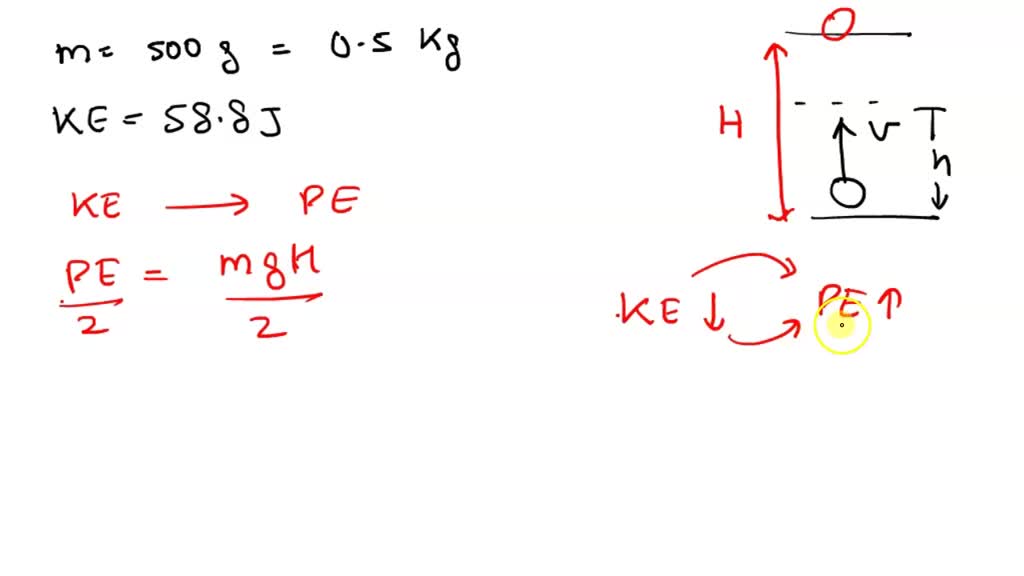 m = 500 g = 0.5 Kg
KE = 58.8J
KE → PE
PE/2 = mgH/2
H
v T
h ↓
KE ↓ PE ↑